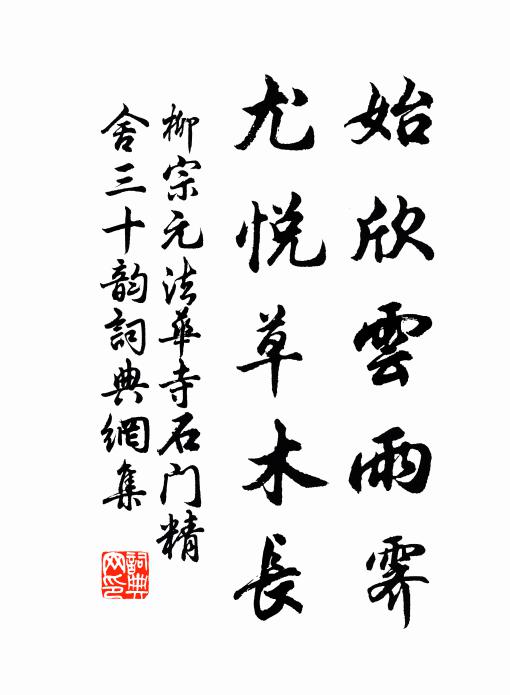 始欣雲雨霽
尤悦草木長
柳宗元法華寺石门精
舍三十韵詞典網集
詞典
网印